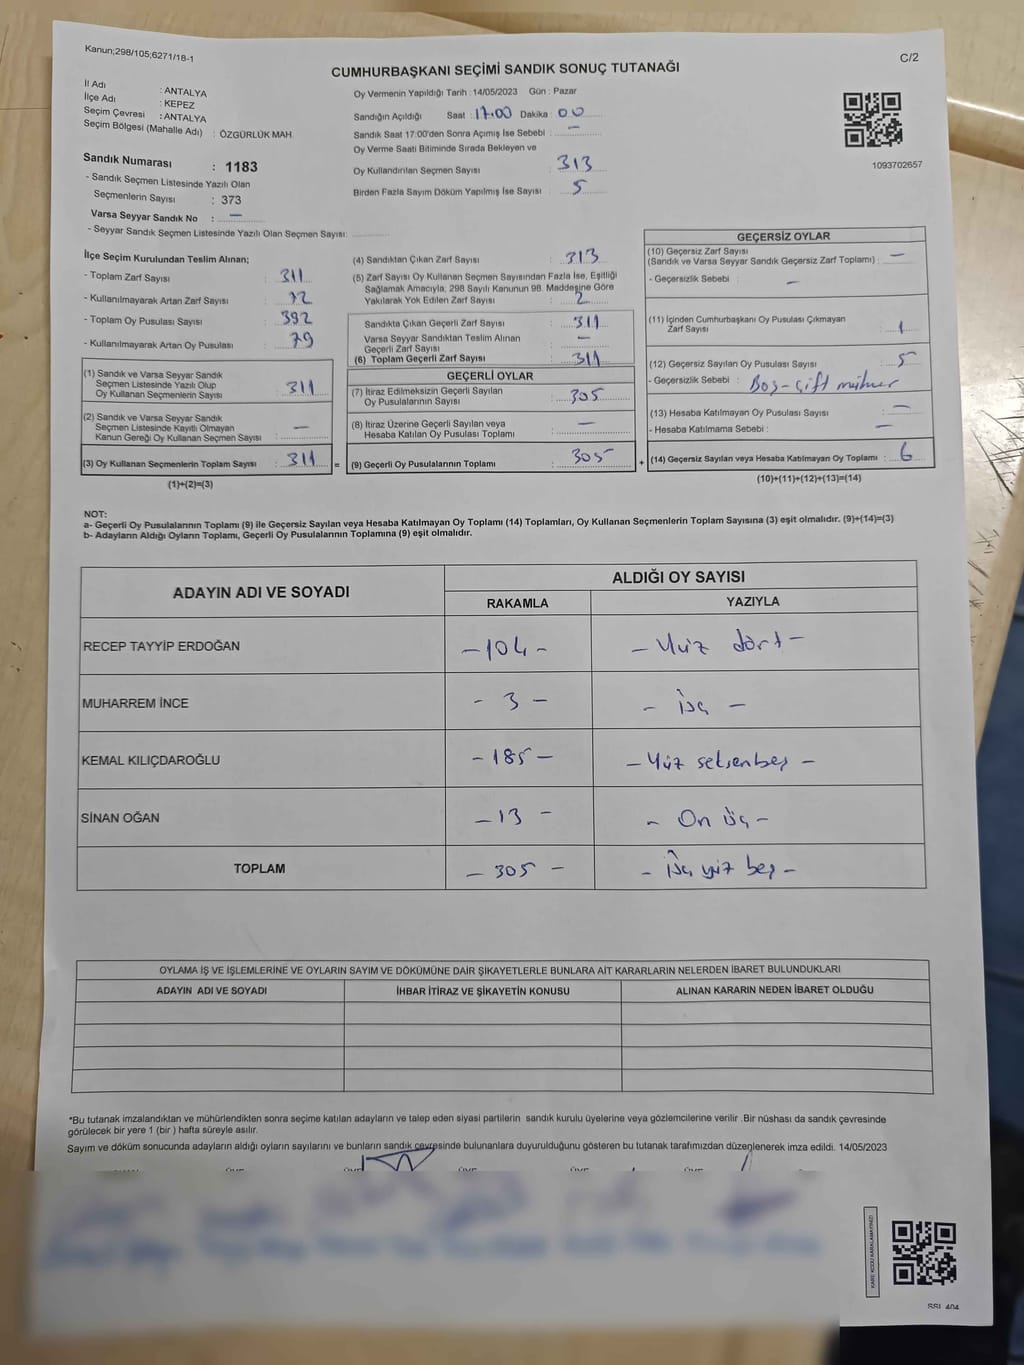 Kanun;298/105;6271/18-1
C/2
CUMHURBAŞKANI SEÇİMİ SANDIK SONUÇ TUTANAĞI
İl Adı : ANTALYA
İlçe Adı : KEPEZ
Seçim Çevresi : ANTALYA
Seçim Bölgesi (Mahalle Adı) : ÖZGÜRLÜK MAH.
Sandık Numarası : 1183
- Sandık Seçmen Listesinde Yazılı Olan
Seçmenlerin Sayısı : 373
Varsa Seyyar Sandık No : –
- Seyyar Sandık Seçmen Listesinde Yazılı Olan Seçmen Sayısı:
Oy Vermenin Yapıldığı Tarih : 14/05/2023 Gün : Pazar
Sandığın Açıldığı Saat : 17.00 Dakika : 00
Sandık Saat 17:00'den Sonra Açımış İse Sebebi : –
Oy Verme Saati Bitiminde Sırada Bekleyen ve
Oy Kullandırılan Seçmen Sayısı : 313
Birden Fazla Sayım Döküm Yapılmış İse Sayısı : 5
1093702657
İlçe Seçim Kurulundan Teslim Alınan;
- Toplam Zarf Sayısı : 311
- Kullanılmayarak Artan Zarf Sayısı : 72
- Toplam Oy Pusulası Sayısı : 392
- Kullanılmayarak Artan Oy Pusulası : 79
(1) Sandık ve Varsa Seyyar Sandık
Seçmen Listesinde Yazılı Olup
Oy Kullanan Seçmenlerin Sayısı : 311
(2) Sandık ve Varsa Seyyar Sandık
Seçmen Listesinde Kayıtlı Olmayan
Kanun Gereği Oy Kullanan Seçmen Sayısı : –
(3) Oy Kullanan Seçmenlerin Toplam Sayısı : 311
(1)+(2)=(3)
(4) Sandıktan Çıkan Zarf Sayısı : 313
(5) Zarf Sayısı Oy Kullanan Seçmen Sayısından Fazla İse, Eşitliği
Sağlamak Amacıyla, 298 Sayılı Kanunun 98. Maddesine Göre
Yakılarak Yok Edilen Zarf Sayısı : 2
Sandıkta Çıkan Geçerli Zarf Sayısı : 311
Varsa Seyyar Sandıktan Teslim Alınan
Geçerli Zarf Sayısı : –
(6) Toplam Geçerli Zarf Sayısı : 311
GEÇERLİ OYLAR
(7) İtiraz Edilmeksizin Geçerli Sayılan
Oy Pusulalarının Sayısı : 305
(8) İtiraz Üzerine Geçerli Sayılan veya
Hesaba Katılan Oy Pusulası Toplamı : –
= (9) Geçerli Oy Pusulalarının Toplamı : 305
GEÇERSİZ OYLAR
(10) Geçersiz Zarf Sayısı
(Sandık ve Varsa Seyyar Sandık Geçersiz Zarf Toplamı) : –
- Geçersizlik Sebebi : –
(11) İçinden Cumhurbaşkanı Oy Pusulası Çıkmayan
Zarf Sayısı : 1
(12) Geçersiz Sayılan Oy Pusulası Sayısı : 5
- Geçersizlik Sebebi : Boş-çift mühür
(13) Hesaba Katılmayan Oy Pusulası Sayısı : –
- Hesaba Katılmama Sebebi : –
+ (14) Geçersiz Sayılan veya Hesaba Katılmayan Oy Toplamı : 6
(10)+(11)+(12)+(13)=(14)
NOT:
a- Geçerli Oy Pusulalarının Toplamı (9) ile Geçersiz Sayılan veya Hesaba Katılmayan Oy Toplamı (14) Toplamları, Oy Kullanan Seçmenlerin Toplam Sayısına (3) eşit olmalıdır. (9)+(14)=(3)
b- Adayların Aldığı Oyların Toplamı, Geçerli Oy Pusulalarının Toplamına (9) eşit olmalıdır.
ADAYIN ADI VE SOYADI ALDIĞI OY SAYISI
RAKAMLA YAZIYLA
RECEP TAYYİP ERDOĞAN -104- -Yüz dört-
MUHARREM İNCE - 3 - - üç -
KEMAL KILIÇDAROĞLU -185- -Yüz seksenbeş-
SİNAN OĞAN -13- - On üç-
TOPLAM - 305 - - üç yüz beş -
OYLAMA İŞ VE İŞLEMLERİNE VE OYLARIN SAYIM VE DÖKÜMÜNE DAİR ŞİKAYETLERLE BUNLARA AİT KARARLARIN NELERDEN İBARET BULUNDUKLARI
ADAYIN ADI VE SOYADI İHBAR İTİRAZ VE ŞİKAYETİN KONUSU ALINAN KARARIN NEDEN İBARET OLDUĞU
*Bu tutanak imzalandıktan ve mühürlendikten sonra seçime katılan adayların ve talep eden siyasi partilerin sandık kurulu üyelerine veya gözlemcilerine verilir .Bir nüshası da sandık çevresinde
görülecek bir yere 1 (bir ) hafta süreyle asılır.
Sayım ve döküm sonucunda adayların aldığı oyların sayılarını ve bunların sandık çevresinde bulunanlara duyurulduğunu gösteren bu tutanak tarafımızdan düzenlenerek imza edildi. 14/05/2023
KARE KODU KARALAMAYINIZ!
SSL 404